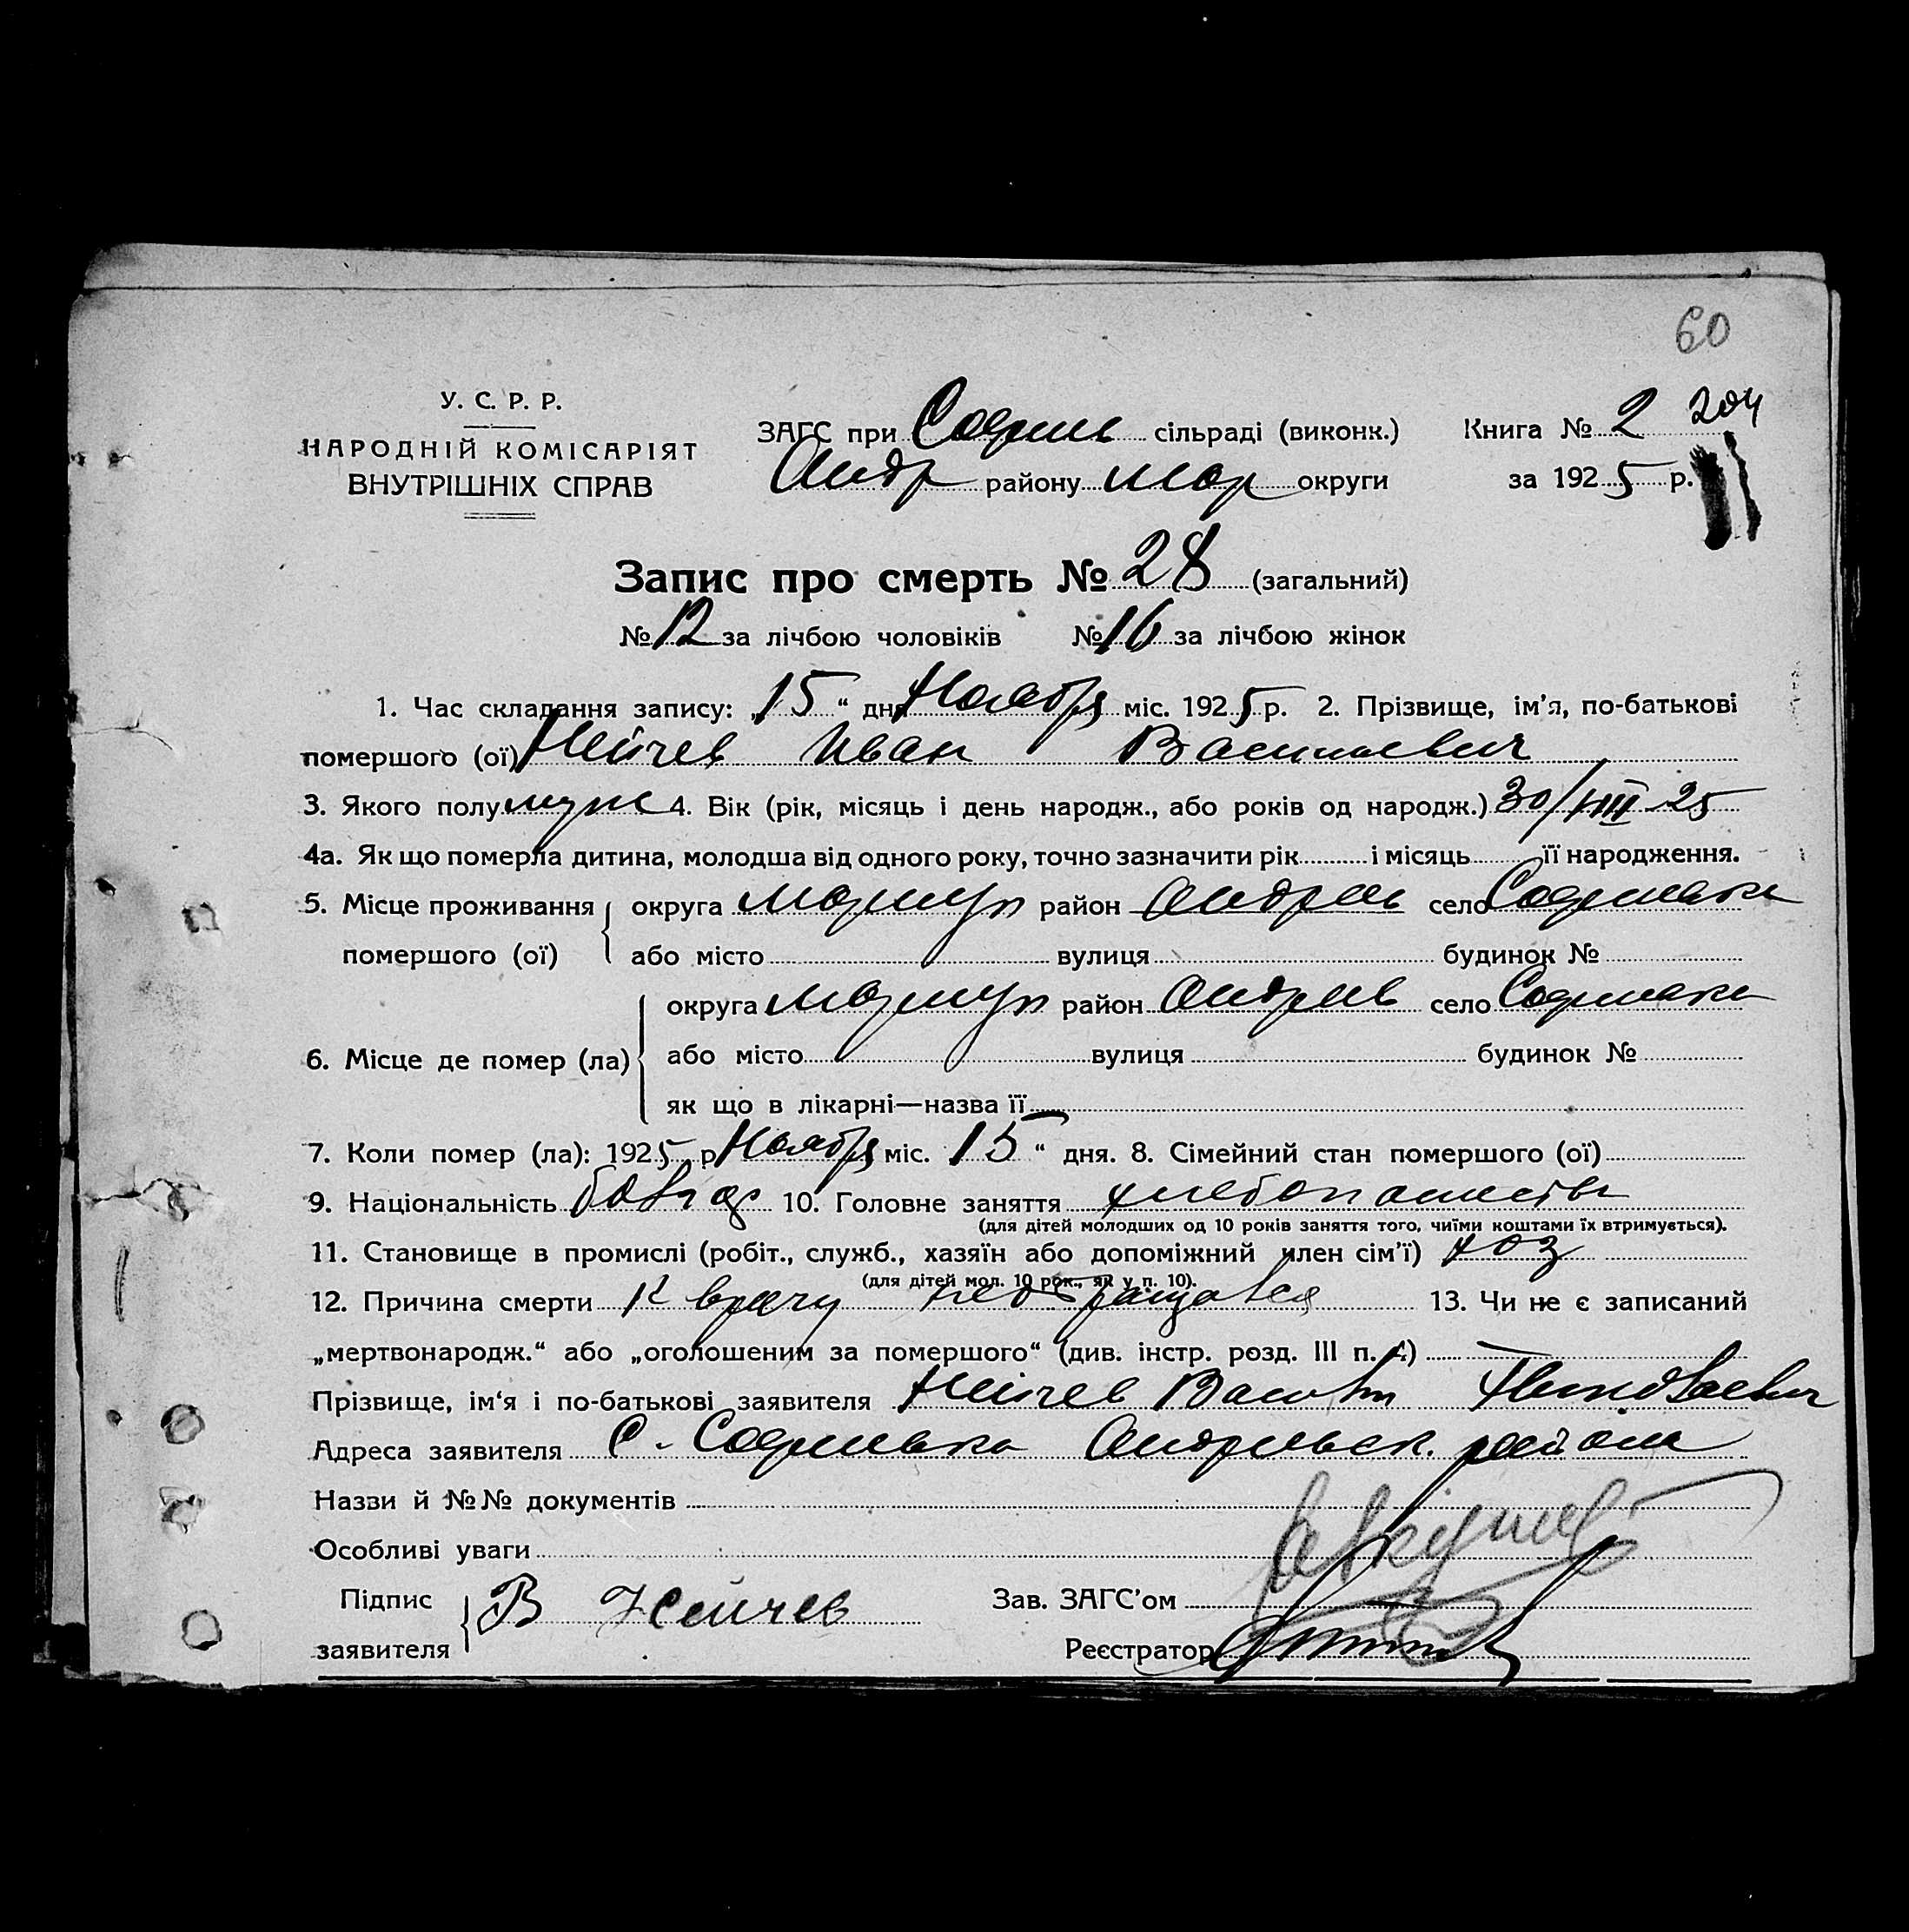 60
У. С. Р. Р.
НАРОДНІЙ КОМІСАРІЯТ
ВНУТРІШНІХ СПРАВ
ЗАГС при Софиев сільраді (виконк.) Книга № 2 204
Андр району Мар округи за 1925 р.
Запис про смерть № 28 (загальний)
№ 12 за лічбою чоловіків № 16 за лічбою жінок
1. Час складання запису: „15“ дня Ноября міс. 1925 р. 2. Прізвище, ім’я, по-батькові
помершого (ої) Нейчев Иван Васильевич
3. Якого полу муж 4. Вік (рік, місяць і день народж., або років од народж.) 30/VIII 25
4а. Як що померла дитина, молодша від одного року, точно зазначити рік і місяць її народження.
5. Місце проживання округа Мариуп район Андрев село Софиевка
помершого (ої) або місто вулиця будинок №
округа Мариуп район Андрев село Софиевка
6. Місце де помер (ла) або місто вулиця будинок №
як що в лікарні—назва її
7. Коли помер (ла): 1925 р Ноября міс. 15“ дня. 8. Сімейний стан помершого (ої)
9. Національність болгар 10. Головне заняття хлебопашество
(для дітей молодших од 10 років заняття того, чиїми коштами їх втримується).
11. Становище в промислі (робіт., служб., хазяїн або допоміжний член сім’ї) хоз
(для дітей мол. 10 рок., як у п. 10).
12. Причина смерти К врачу не обращался 13. Чи не є записаний
„мертвонародж.“ або „оголошеним за помершого“ (див. інстр. розд. III п. 4) —
Прізвище, ім‘я і по-батькові заявителя Нейчев Васил
Адреса заявителя С. Софиевка Андревск. район
Назви й №№ документів
Особливі уваги
Підпис В Нейчев Зав. ЗАГС’ом
заявителя Реєстратор